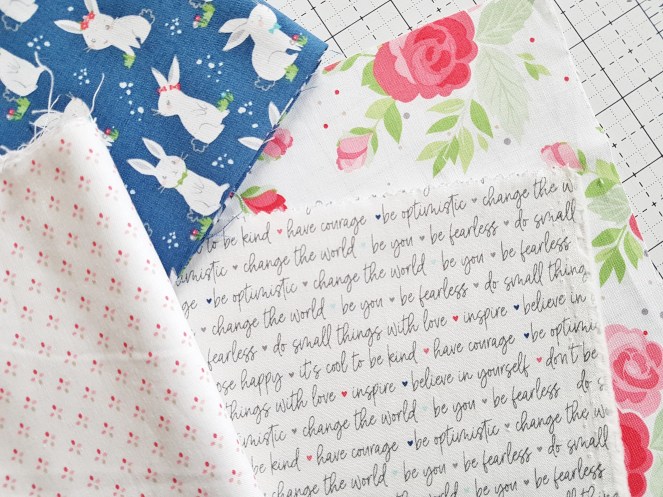 change the w
to be kind ♥ have courage ♥ be optimistic ♥
♥ change the world ♥ be you ♥ be fearless ♥ do small
♥ be optimistic ♥ change the world ♥ be you ♥ be fearless
♥ change the world ♥ be you ♥ be fearless ♥ do small thing
fearless ♥ do small things with love ♥ inspire ♥ believe in
happy ♥ it's cool to be kind ♥ have courage ♥ be
things with love ♥ inspire ♥ believe in yourself ♥ don't be
♥ change the world ♥ be you ♥ be fearless ♥ do s
be kind ♥ have courage ♥ be optimistic ♥ change the w
change the world ♥ be you ♥ be fearless ♥ do small
be you ♥ be fearless